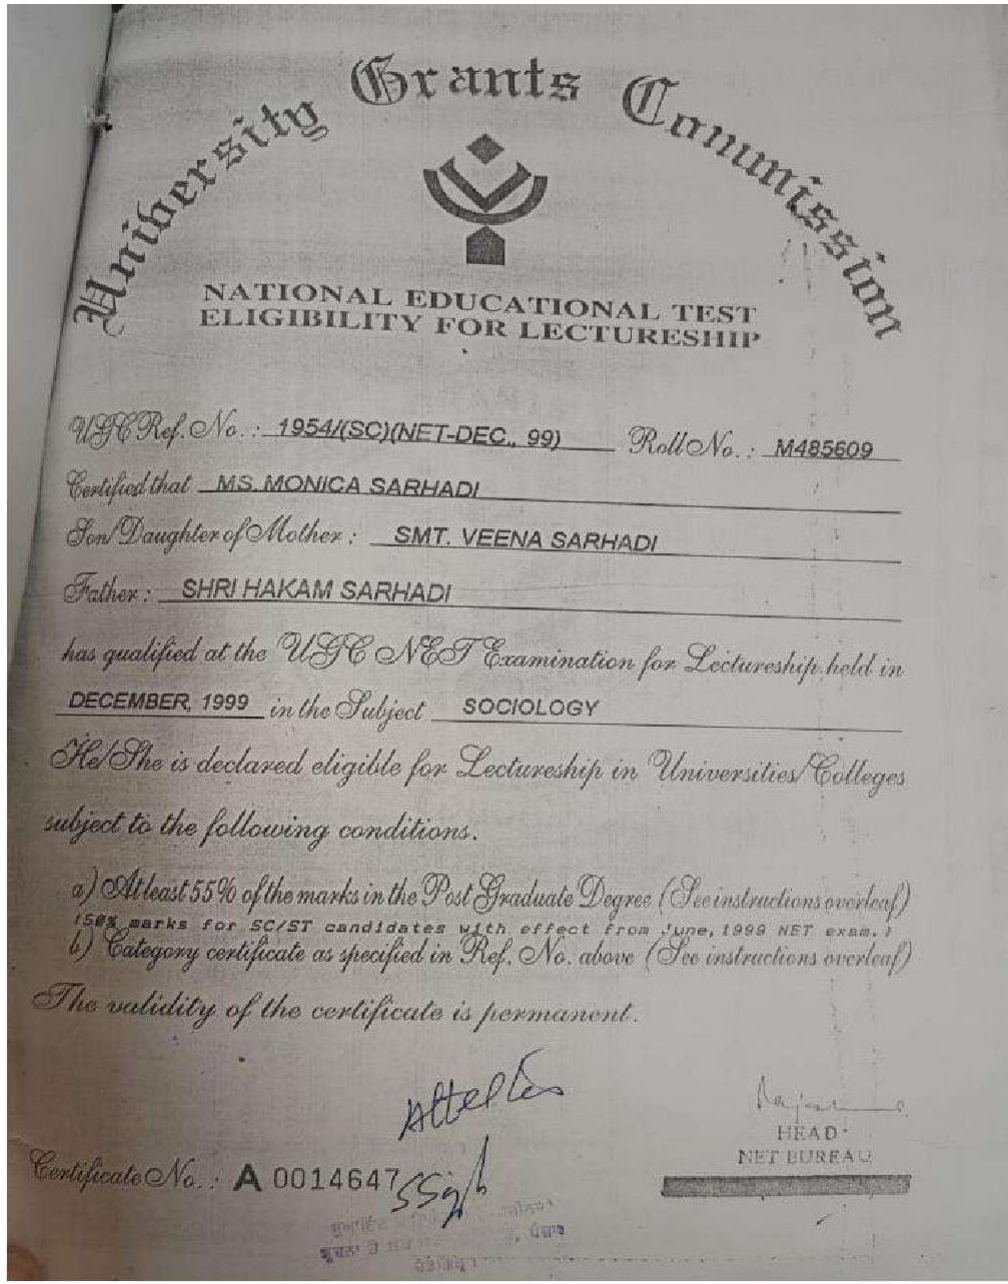 University Grants Commission
NATIONAL EDUCATIONAL TEST
ELIGIBILITY FOR LECTURESHIP
UGC Ref. No. : 1954/(SC)(NET-DEC., 99) Roll No. : M485609
Certified that MS. MONICA SARHADI
Son/Daughter of Mother : SMT. VEENA SARHADI
Father : SHRI HAKAM SARHADI
has qualified at the UGC NET Examination for Lectureship held in
DECEMBER, 1999 in the Subject SOCIOLOGY
He/She is declared eligible for Lectureship in Universities/Colleges
subject to the following conditions.
a) Atleast 55% of the marks in the Post Graduate Degree (See instructions overleaf)
(50% marks for SC/ST candidates with effect from June, 1999 NET exam.)
b) Category certificate as specified in Ref. No. above (See instructions overleaf)
The validity of the certificate is permanent.
HEAD
NET BUREAU
Certificate No. : A 0014647